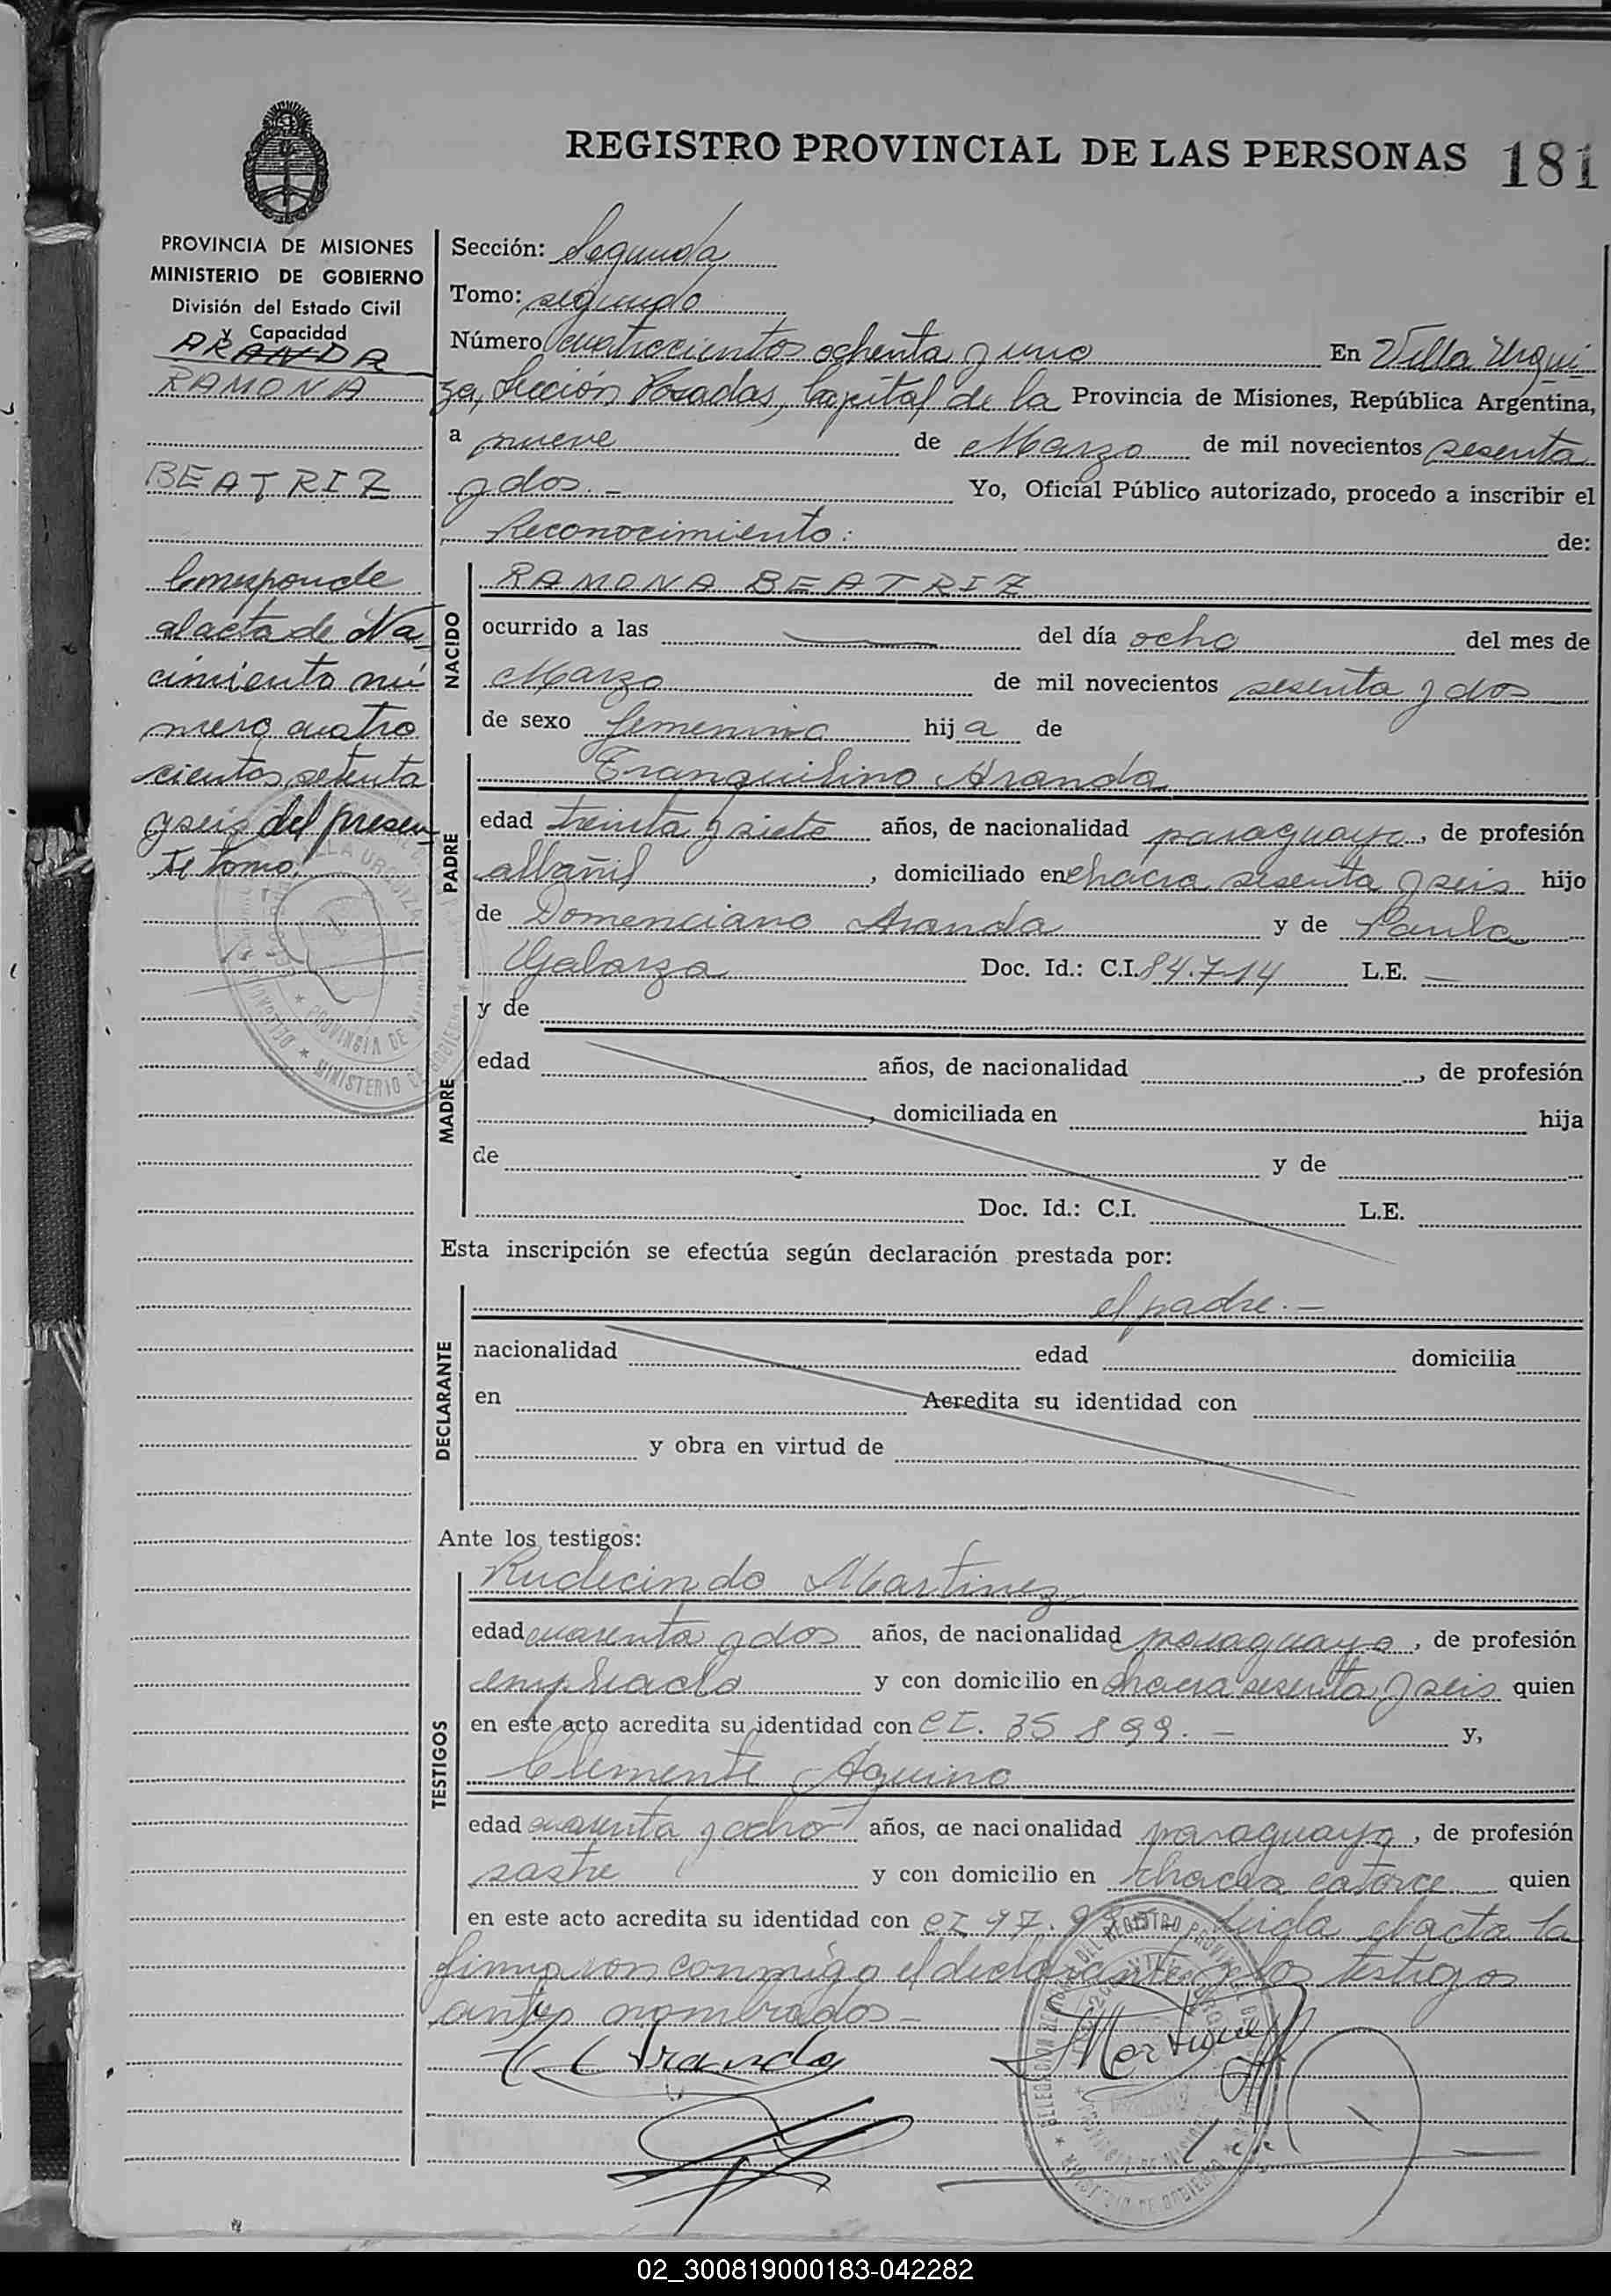 REGISTRO PROVINCIAL DE LAS PERSONAS 181
PROVINCIA DE MISIONES
MINISTERIO DE GOBIERNO
División del Estado Civil
y Capacidad
ARANDA
RAMONA
BEATRIZ
Corresponde
al acta de Na-
cimiento nú
mero cuatro
cientos setenta
y seis del presen
te tomo.
Sección: Segunda
Tomo: segundo
Número cuatrocientos ochenta y uno En Villa Urqui-
za, Sección Posadas, Capital de la Provincia de Misiones, República Argentina,
a nueve de Marzo de mil novecientos sesenta
y dos.- Yo, Oficial Público autorizado, procedo a inscribir el
Reconocimiento: de:
NACIDO
RAMONA BEATRIZ
ocurrido a las — del día ocho del mes de
Marzo de mil novecientos sesenta y dos
de sexo femenino hija de
PADRE
Tranquilino Aranda
edad treinta y siete años, de nacionalidad paraguaya, de profesión
albañil, domiciliado en chacra sesenta y seis hijo
de Domenciano Aranda y de Paula
Galarza Doc. Id.: C.I. 84.714 L.E. —
MADRE
y de
edad años, de nacionalidad , de profesión
, domiciliada en hija
de y de
Doc. Id.: C.I. L.E.
Esta inscripción se efectúa según declaración prestada por:
DECLARANTE
el padre.-
nacionalidad edad domicilia
en Acredita su identidad con
y obra en virtud de
Ante los testigos:
TESTIGOS
Rudecindo Martinez
edad cuarenta y dos años, de nacionalidad paraguayo, de profesión
empleado y con domicilio en chacra sesenta y seis quien
en este acto acredita su identidad con CI. 35 899.- y,
Clemente Aquino
edad cuarenta y ocho años, de nacionalidad paraguaya, de profesión
sastre y con domicilio en chacra catorce quien
en este acto acredita su identidad con CI Leida el acta la
firmaron conmigo el declarante y los testigos
antes nombrados-
Aranda
Martinez
02_300819000183-042282